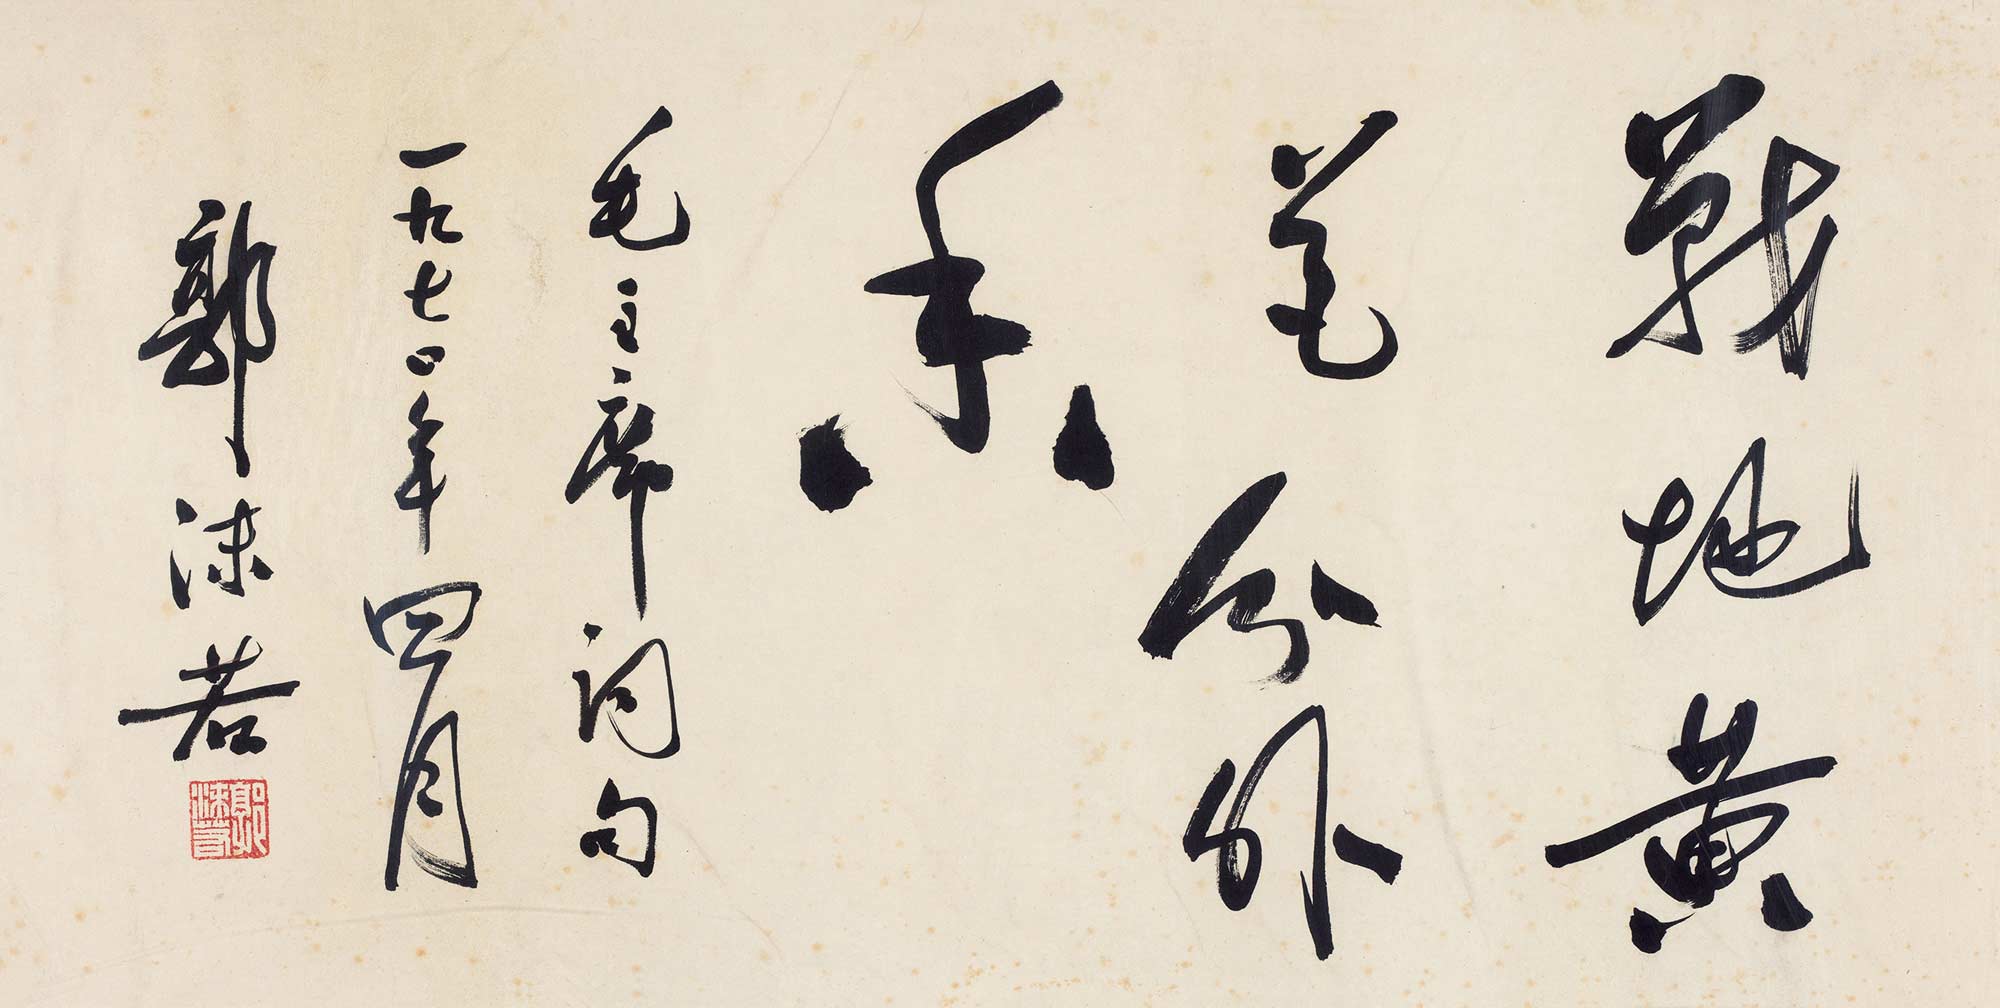 戰地黃
花分外
香
毛主席詞句
一九七〇年四月
郭沫若
郭沫若